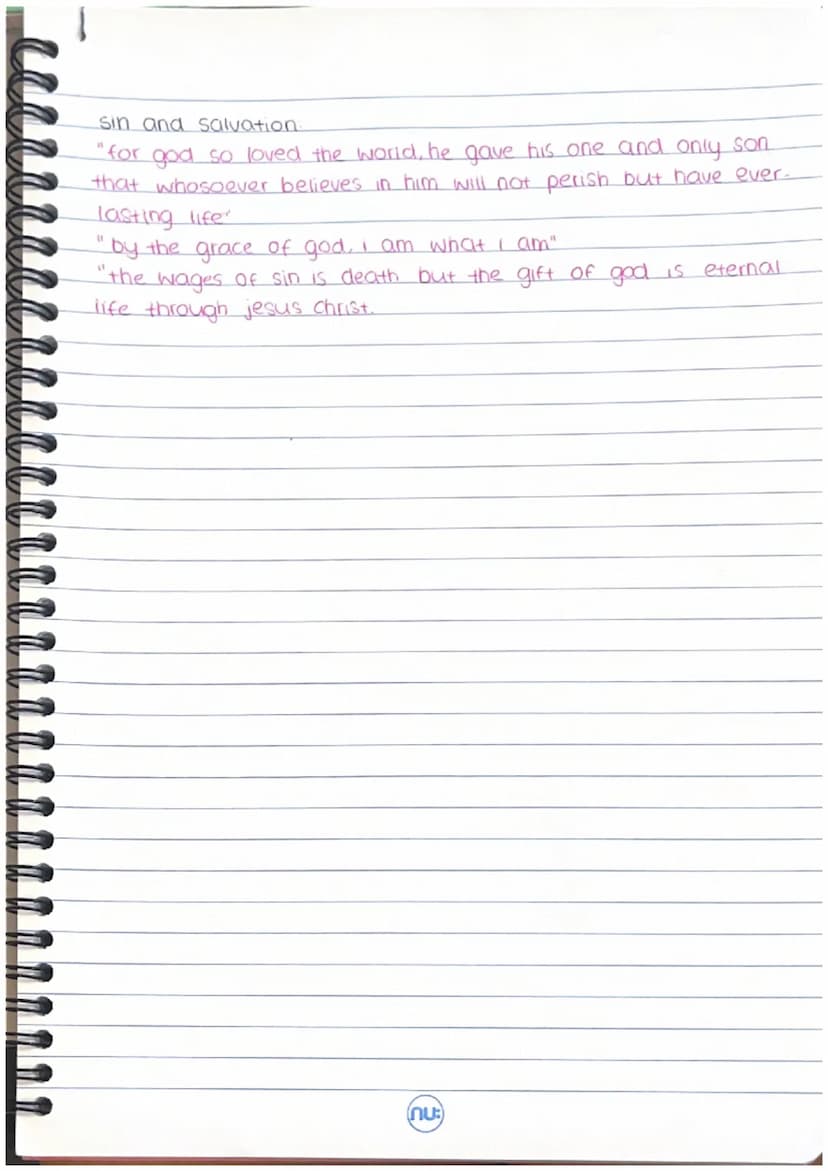 sin and salvation.
"for god so loved the world, he gave his one and only son
that whosoever believes in him will not perish but have ever-
lasting life"
"by the grace of god, i am what i am"
"the wages of sin is death but the gift of god is eternal
life through jesus christ.
nu: